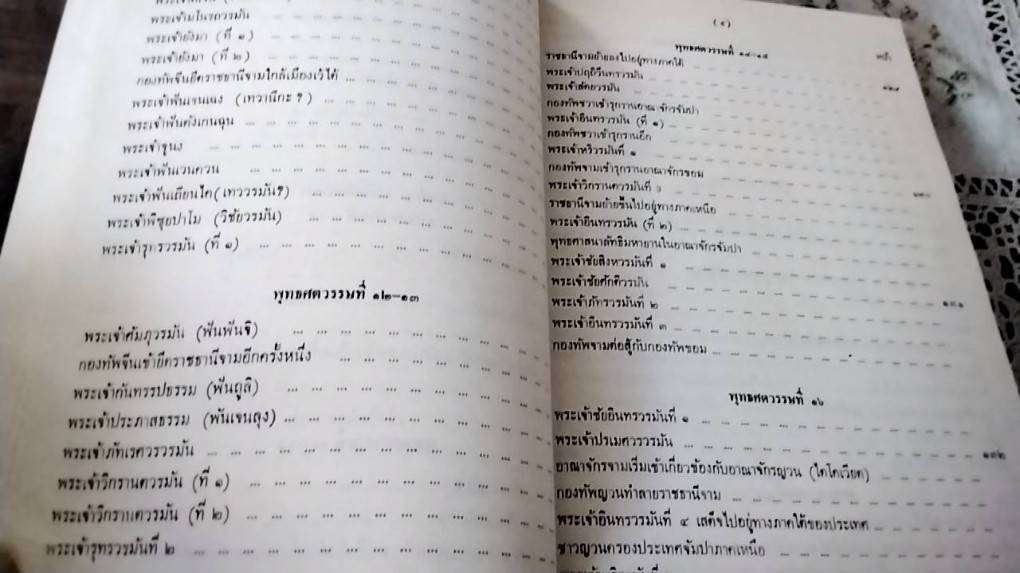 พระเจ้ามโนรถวรมัน
พระเจ้ายังมา (ที่ ๑)
พระเจ้ายังมา (ที่ ๒)
กองทัพจีนยึดราชธานีจามใกล้เมืองเว้ได้
พระเจ้าฟันเชนเฉง (เทวานีกะ ?)
พระเจ้าฟันตังเกนฉุน
พระเจ้าจูนง
พระเจ้าฟันเวนควน
พระเจ้าฟันเถียนไค (เทววรมัน?)
พระเจ้าพิซุยปาโม (วิชัยวรมัน)
พระเจ้ารุทรวรมัน (ที่ ๑)
พุทธศตวรรษที่ ๑๒-๑๓
พระเจ้าศัมภุวรมัน (ฟันพันจิ)
กองทัพจีนเข้ายึดราชธานีจามอีกครั้งหนึ่ง
พระเจ้ากันทรรปธรรม (ฟันถูลิ)
พระเจ้าประภาสธรรม (ฟันเจนลุง)
พระเจ้าภัทเรศวรวรมัน
พระเจ้าวิกรานตวรมัน (ที่ ๑)
พระเจ้าวิกรานตวรมัน (ที่ ๒)
พระเจ้ารุทรวรมันที่ ๒
พุทธศตวรรษที่ ๑๔-๑๕
ราชธานีจามย้ายลงไปอยู่ทางภาคใต้
พระเจ้าปฤถิวีนทรวรมัน
พระเจ้าสัตยวรมัน
กองทัพชวาเข้ารุกรานอาณาจักรจัมปา
พระเจ้าอินทรวรมัน (ที่ ๑)
กองทัพชวาเข้ารุกรานอีก
พระเจ้าหริวรมันที่ ๑
กองทัพจามเข้ารุกรานอาณาจักรขอม
พระเจ้าวิกรานตวรมันที่ ๓
ราชธานีจามย้ายขึ้นไปอยู่ทางภาคเหนือ
พระเจ้าอินทรวรมัน (ที่ ๒)
พุทธศาสนาลัทธิมหายานในอาณาจักรจัมปา
พระเจ้าชัยสิงหวรมันที่ ๑
พระเจ้าชัยศักดิวรมัน
พระเจ้าภัทรวรมันที่ ๒ ๑๓๑
พระเจ้าอินทรวรมันที่ ๓
กองทัพจามต่อสู้กับกองทัพขอม
พุทธศตวรรษที่ ๑๖
พระเจ้าชัยอินทรวรมันที่ ๑
พระเจ้าปรเมศวรวรมัน ๑๓๒
อาณาจักรจามเริ่มเข้าเกี่ยวข้องกับอาณาจักรญวน (ไดโคเวียต)
กองทัพญวนทำลายราชธานีจาม
พระเจ้าอินทรวรมันที่ ๔ เสด็จไปอยู่ทางภาคใต้ของประเทศ
ชาวญวนครองประเทศจัมปาภาคเหนือ